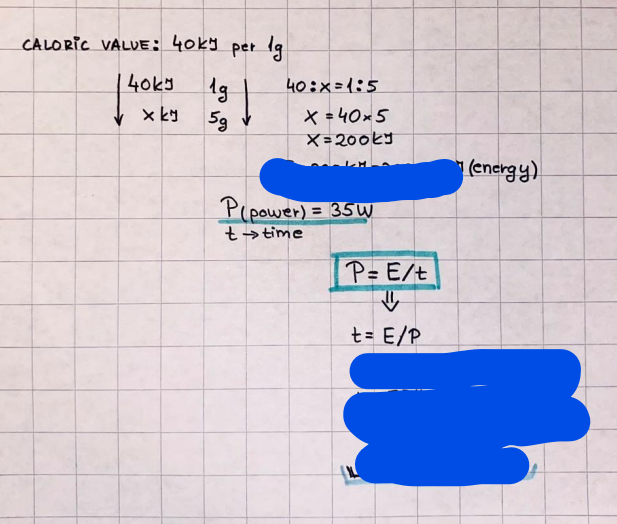 CALORIC VALUE: 40kJ per 1g
40kJ 1g
x kJ 5g
40:x=1:5
x = 40×5
x=200kJ
J (energy)
P(power) = 35W
t → time
P= E/t
⇓
t= E/P